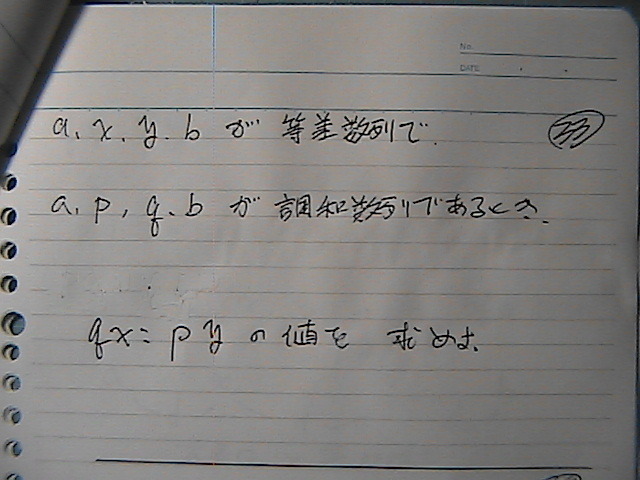 No.
DATE
a, x, y, b が 等差数列で. 33
a, p, q, b が 調和数列であるとき.
qx : py の 値を 求めよ.